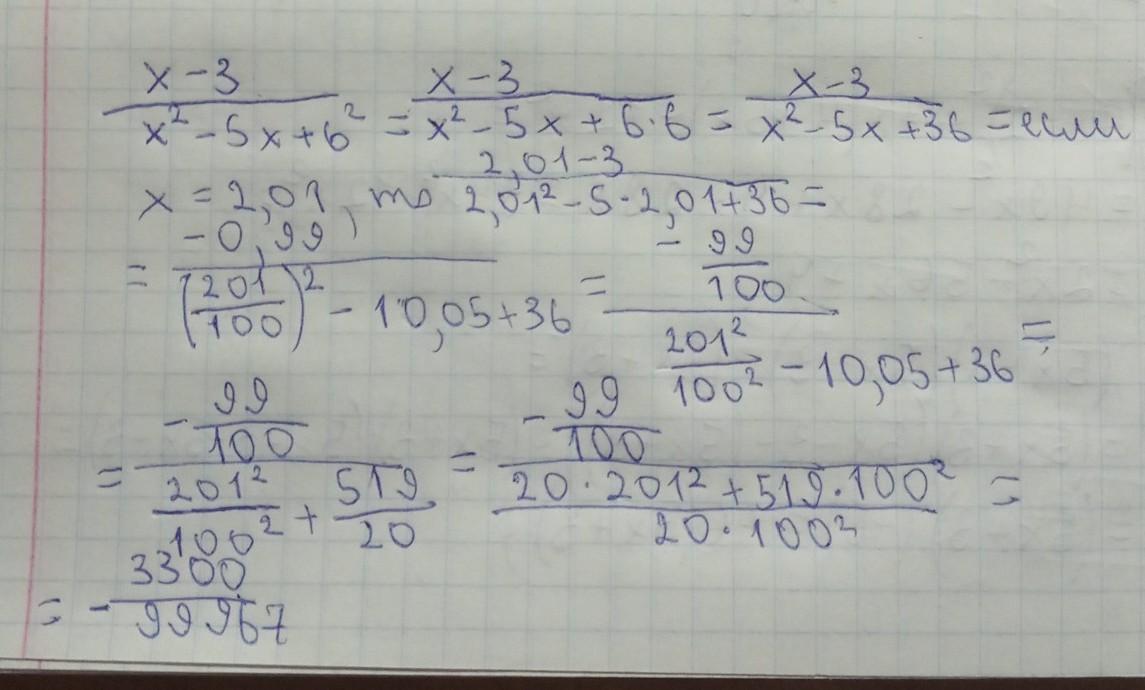 x-3/x²-5x+6² = x-3/x²-5x+6·6 = x-3/x²-5x+36 = если
x = 2,01, то 2,01-3/2,01²-5·2,01+36 =
= -0,99/(201/100)²-10,05+36 = -99/100/201²/100²-10,05+36 =
= -99/100/201²/100²+519/20 = -99/100/20·201²+519·100²/20·100² =
= -3300/99967